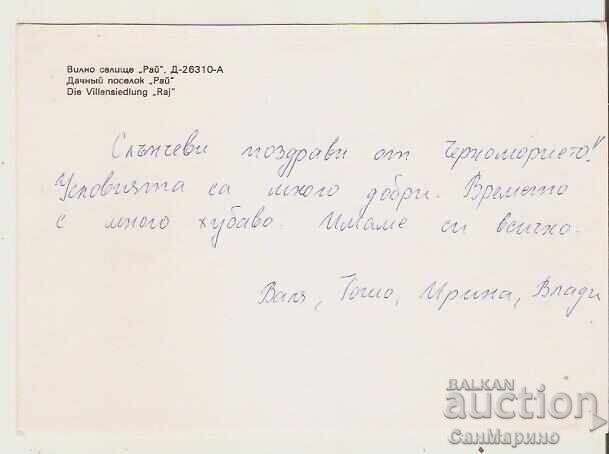 Вилно селище „Рай", Д-26310-А
Дачный поселок „Рай"
Die Villensiedlung „Raj"
Слънчеви поздрави от Черноморието!
Условията са много добри. Времето
е много хубаво. Имаме си всичко.
Валя, Тошо, Ирина, Влади
BALKAN
auction
СанМарино